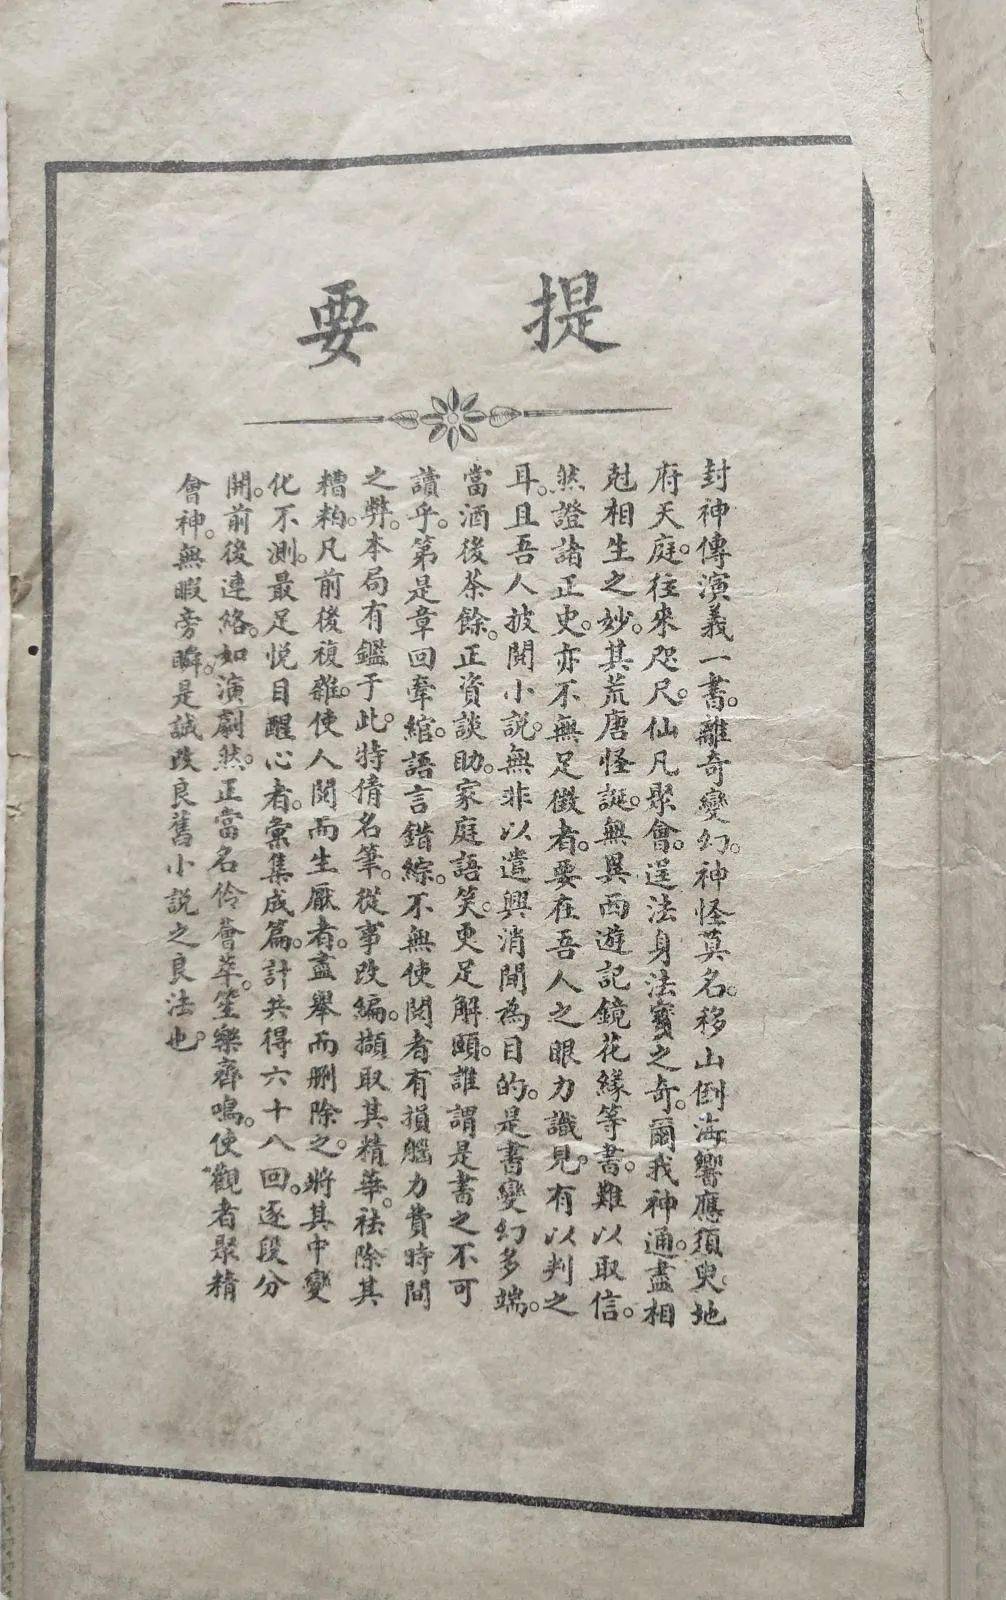 提要
封神傳演義一書。離奇變幻。神怪莫名。移山倒海。響應須臾。地
府天庭。往來咫尺。仙凡聚會。逞法身法寶之奇。爾我神通。盡相
尅相生之妙。其荒唐怪誕。無異西遊記鏡花緣等書。難以取信。
然證諸正史。亦不無足徵者。要在吾人之眼力識見。有以判之
耳。且吾人披閱小說。無非以遣興消閒為目的。是書變幻多端。
當酒後茶餘。正資談助。家庭語笑。更足解頤。誰謂是書之不可
讀乎。第是章回牽綰。語言錯綜。不無使閱者有損腦力費時間
之弊。本局有鑑于此。特倩名筆。從事改編。擷取其精華。祛除其
糟粕。凡前後複雜。使人閱而生厭者。盡舉而刪除之。將其中變
化不測。最足悅目醒心者。彙集成篇。計共得六十八回。逐段分
開。前後連絡。如演劇然。正當名伶薈萃。笙樂齊鳴。使觀者聚精
會神。無暇旁瞬。是誠改良舊小說之良法也。